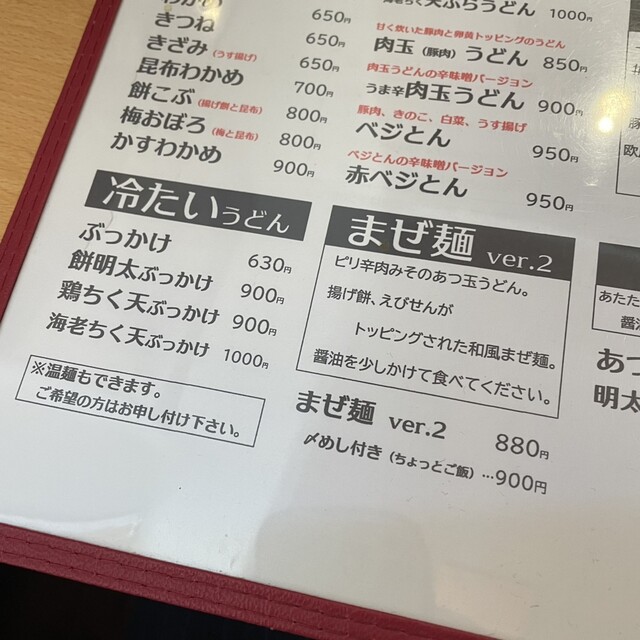 わかめ
きつね 650円
きざみ(うす揚げ) 650円
昆布わかめ 650円
餅こぶ(揚げ餅と昆布) 700円
梅おぼろ(梅と昆布) 800円
かすわかめ 800円
900円
冷たいうどん
ぶっかけ 630円
餅明太ぶっかけ 900円
鶏ちく天ぶっかけ 900円
海老ちく天ぶっかけ 1000円
※温麺もできます。
ご希望の方はお申し付け下さい。
天ぷらうどん 1000円
甘く炊いた豚肉と卵黄トッピングのうどん
肉玉(豚肉)うどん 850円
肉玉うどんの辛味噌バージョン
うま辛肉玉うどん 900円
豚肉、きのこ、白菜、うす揚げ
ベジとん 950円
ベジとんの辛味噌バージョン
赤ベジとん 950円
まぜ麺 ver.2
ピリ辛肉みそのあつ玉うどん。
揚げ餅、えびせんが
トッピングされた和風まぜ麺。
醤油を少しかけて食べてください。
まぜ麺 ver.2 880円
〆めし付き(ちょっとご飯)…900円
あたた
醤油
あつ
明太